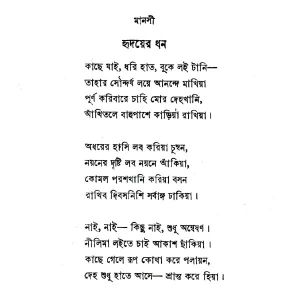 মানসী
হৃদয়ের ধন
কাছে যাই, ধরি হাত, বুকে লই টানি—
তাহার সৌন্দর্য লয়ে আনন্দে মাখিয়া
পূর্ণ করিবারে চাহি মোর দেহখানি,
আঁখিতলে বাহুপাশে কাড়িয়া রাখিয়া।
অধরের হাসি লব করিয়া চুম্বন,
নয়নের দৃষ্টি লব নয়নে আঁকিয়া,
কোমল পরশখানি করিয়া বসন
রাখিব দিবসনিশি সর্বাঙ্গ ঢাকিয়া।
নাই, নাই— কিছু নাই, শুধু অন্বেষণ।
নীলিমা লইতে চাই আকাশ ছাঁকিয়া।
কাছে গেলে রূপ কোথা করে পলায়ন,
দেহ শুধু হাতে আসে— শ্রান্ত করে হিয়া।